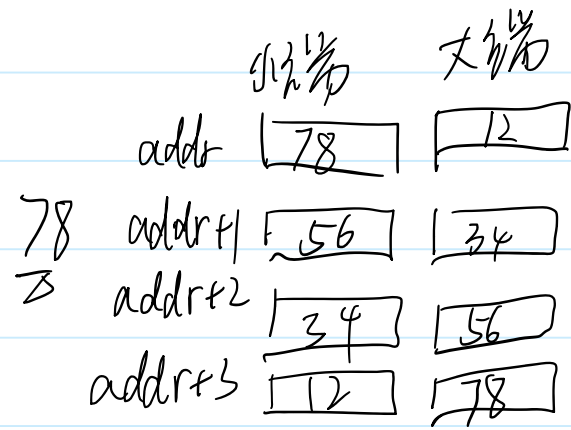 小端 大端
addr 78 12
78 addr+1 56 34
addr+2 34 56
addr+3 12 78